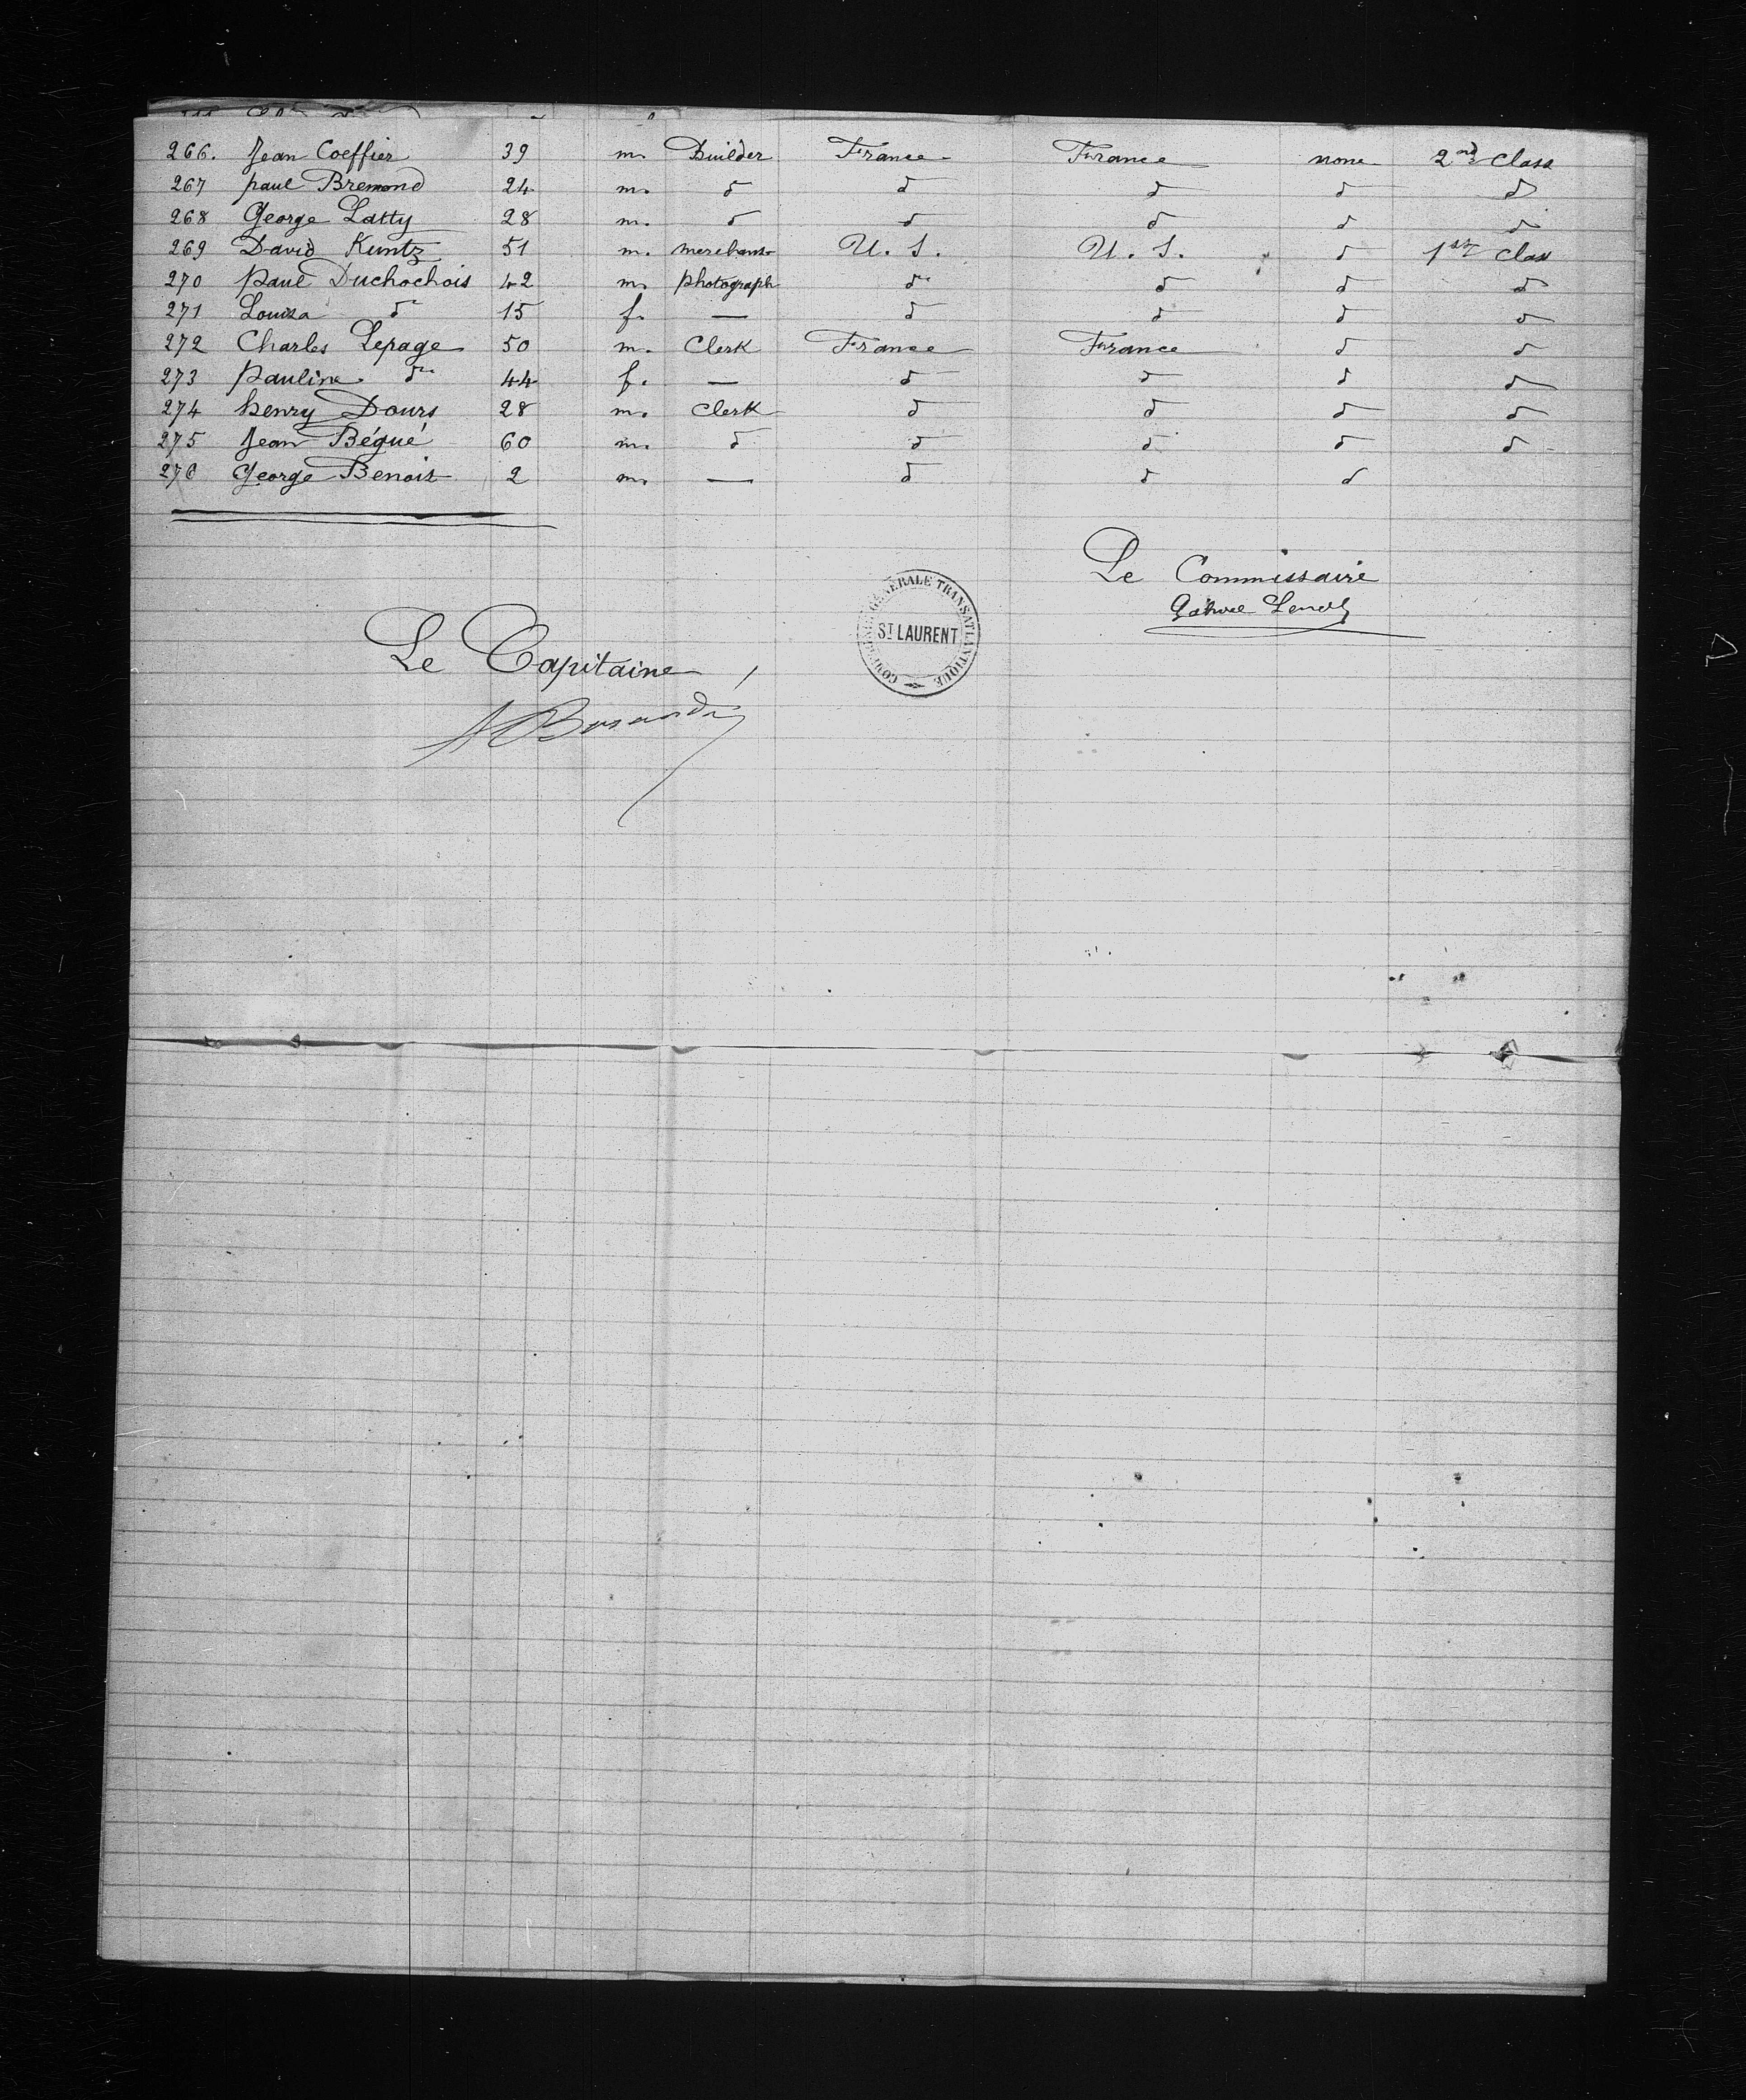 266. Jean Coeffier 39 m. Builder France France none 2nd Class
267 paul Bremond 24 m. do do do do do
268 George Latty 28 m. do do do do do
269 David Kuntz 51 m. merchant U. S. U. S. do 1st Class
270 paul Duchochois 42 m. photograph do do do do
271 Louisa do 15 f. — do do do do
272 Charles Lepage 50 m. Clerk France France do do
273 pauline do 44 f. — do do do do
274 henry Dours 28 m. Clerk do do do do
275 Jean Bégué 60 m. do do do do do
276 George Benoit 2 m. — do do do
Le Commissaire
COMPAGNIE GÉNÉRALE TRANSATLANTIQUE
ST LAURENT
Le Capitaine